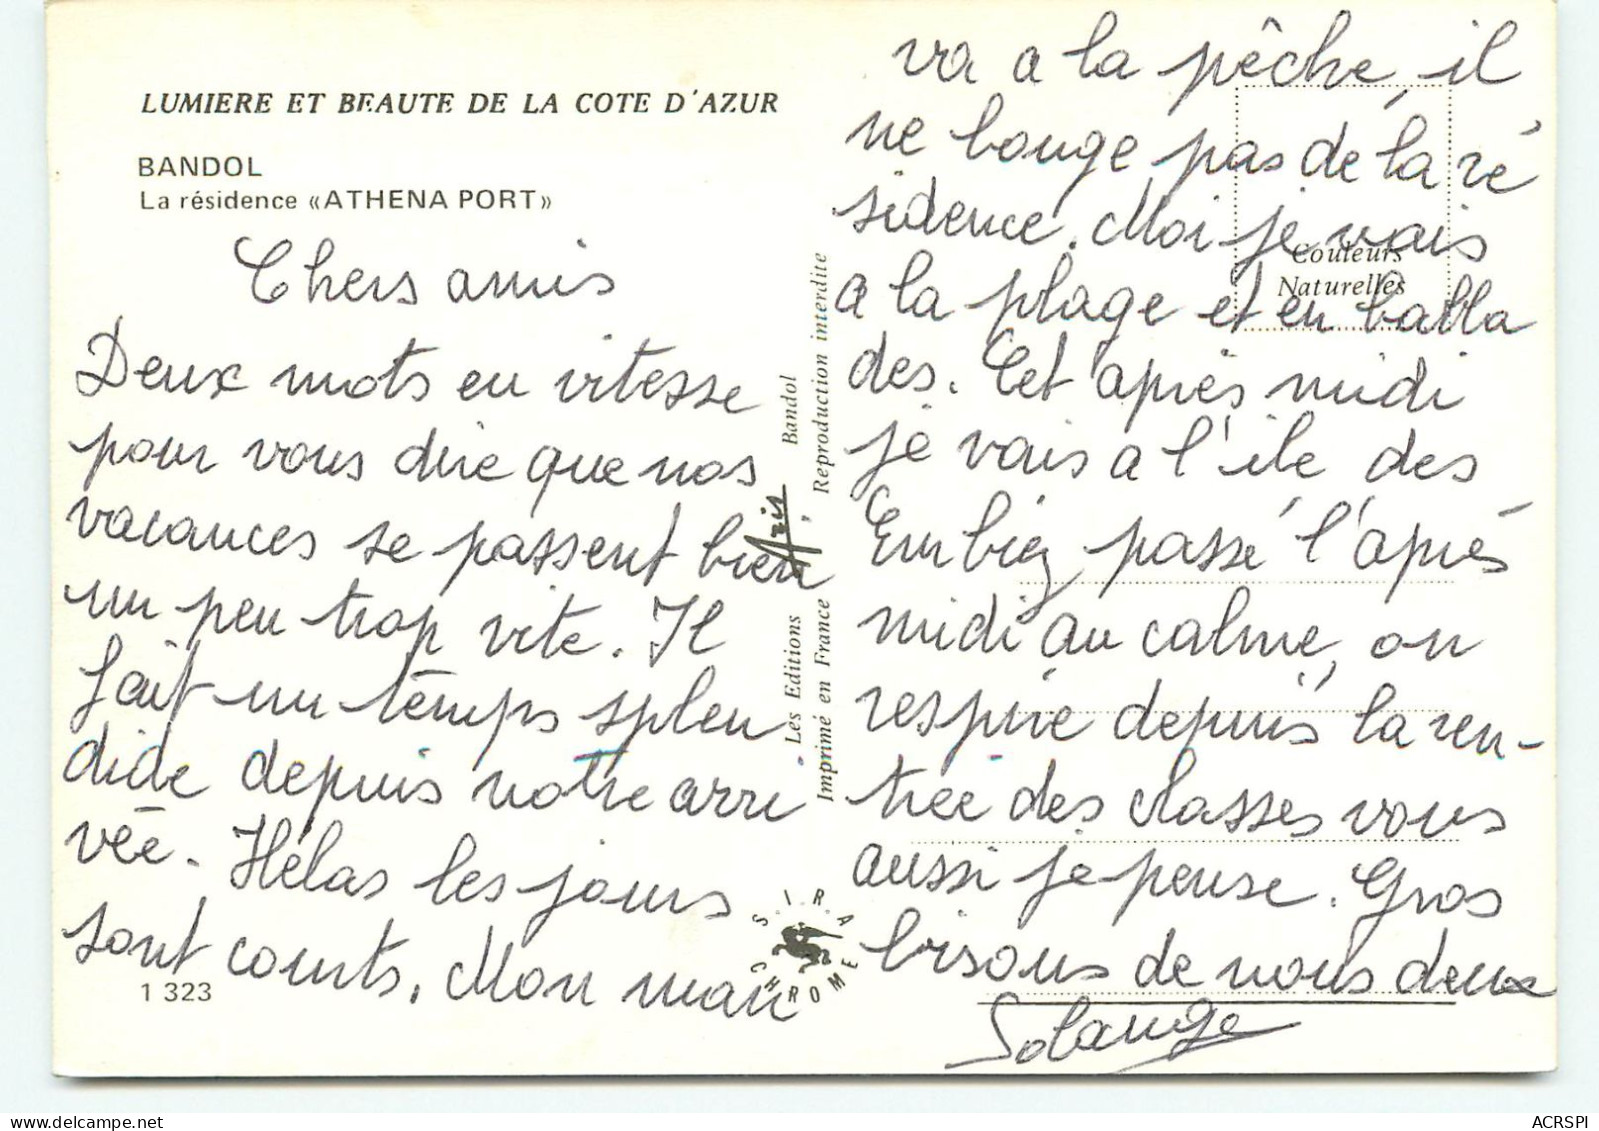 LUMIERE ET BEAUTE DE LA COTE D'AZUR
BANDOL
La résidence «ATHENA PORT»
Chers amis
Deux mots en vitesse
pour vous dire que nos
vacances se passent bien
un peu trop vite. Il
fait un temps splen
dide depuis notre arri
vée. Hélas les jours
sont courts. Mon man
1 323
Les Editions Aris, Bandol
Imprimé en France Reproduction interdite
S.I.R.A.
CHROME
va a la pêche, il
ne bouge pas de la ré
sidence. Moi je vais
a la plage et en balla
des. Cet après midi
je vais a l'ile des
Embiez passé l'après
midi au calme, on
respire depuis la ren-
trée des classes vous
aussi je pense. Gros
bisous de nous deux
Solange
Couleurs
Naturelles
ACRSPI